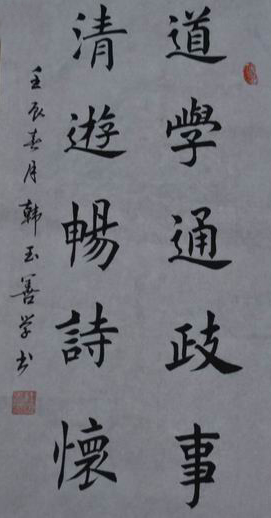 道學通政事
清遊暢詩懷
壬辰春月韩玉善学书